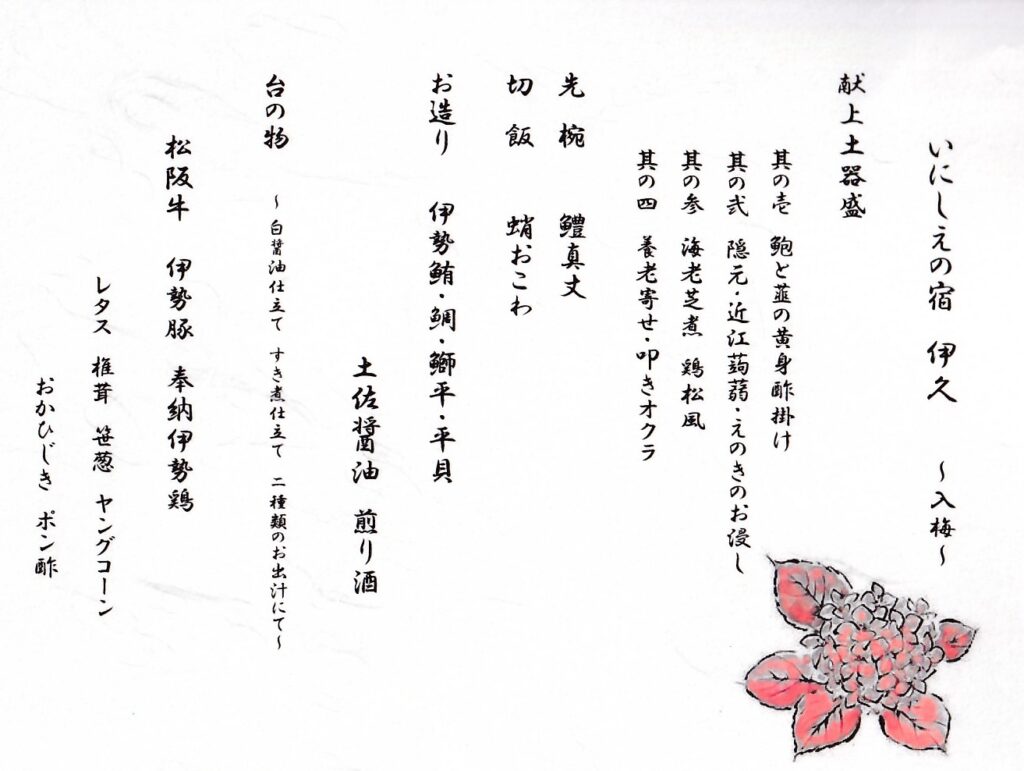 いにしえの宿 伊久 ～入梅～
献上土器盛
其の壱 鮑と韮の黄身酢掛け
其の弐 隠元・近江蒟蒻・えのきのお浸し
其の参 海老芝煮 鶏松風
其の四 養老寄せ・叩きオクラ
先椀 鱧真丈
切飯 蛸おこわ
お造り 伊勢鮪・鯛・鰤平・平貝
土佐醤油 煎り酒
台の物 ～白醤油仕立て すき煮仕立て 二種類のお出汁にて～
松阪牛 伊勢豚 奉納伊勢鶏
レタス 椎茸 笹葱 ヤングコーン
おかひじき ポン酢